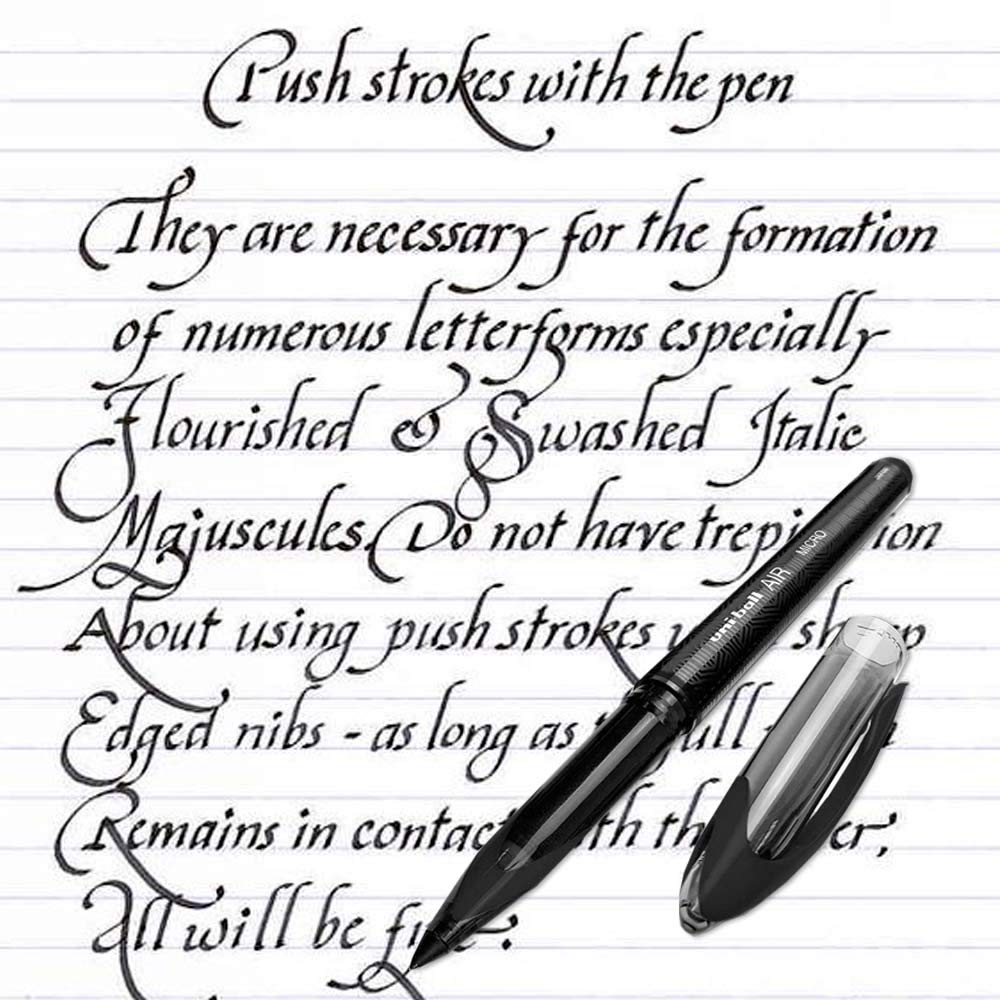 Push strokes with the pen
They are necessary for the formation
of numerous letterforms especially
Flourished & Swashed Italic
Majuscules. Do not have trepi ion
About using push strokes sh p
Edged nibs - as long as full
Remains in contac th th er,
All will be fine.
uni-ball AIR MICRO